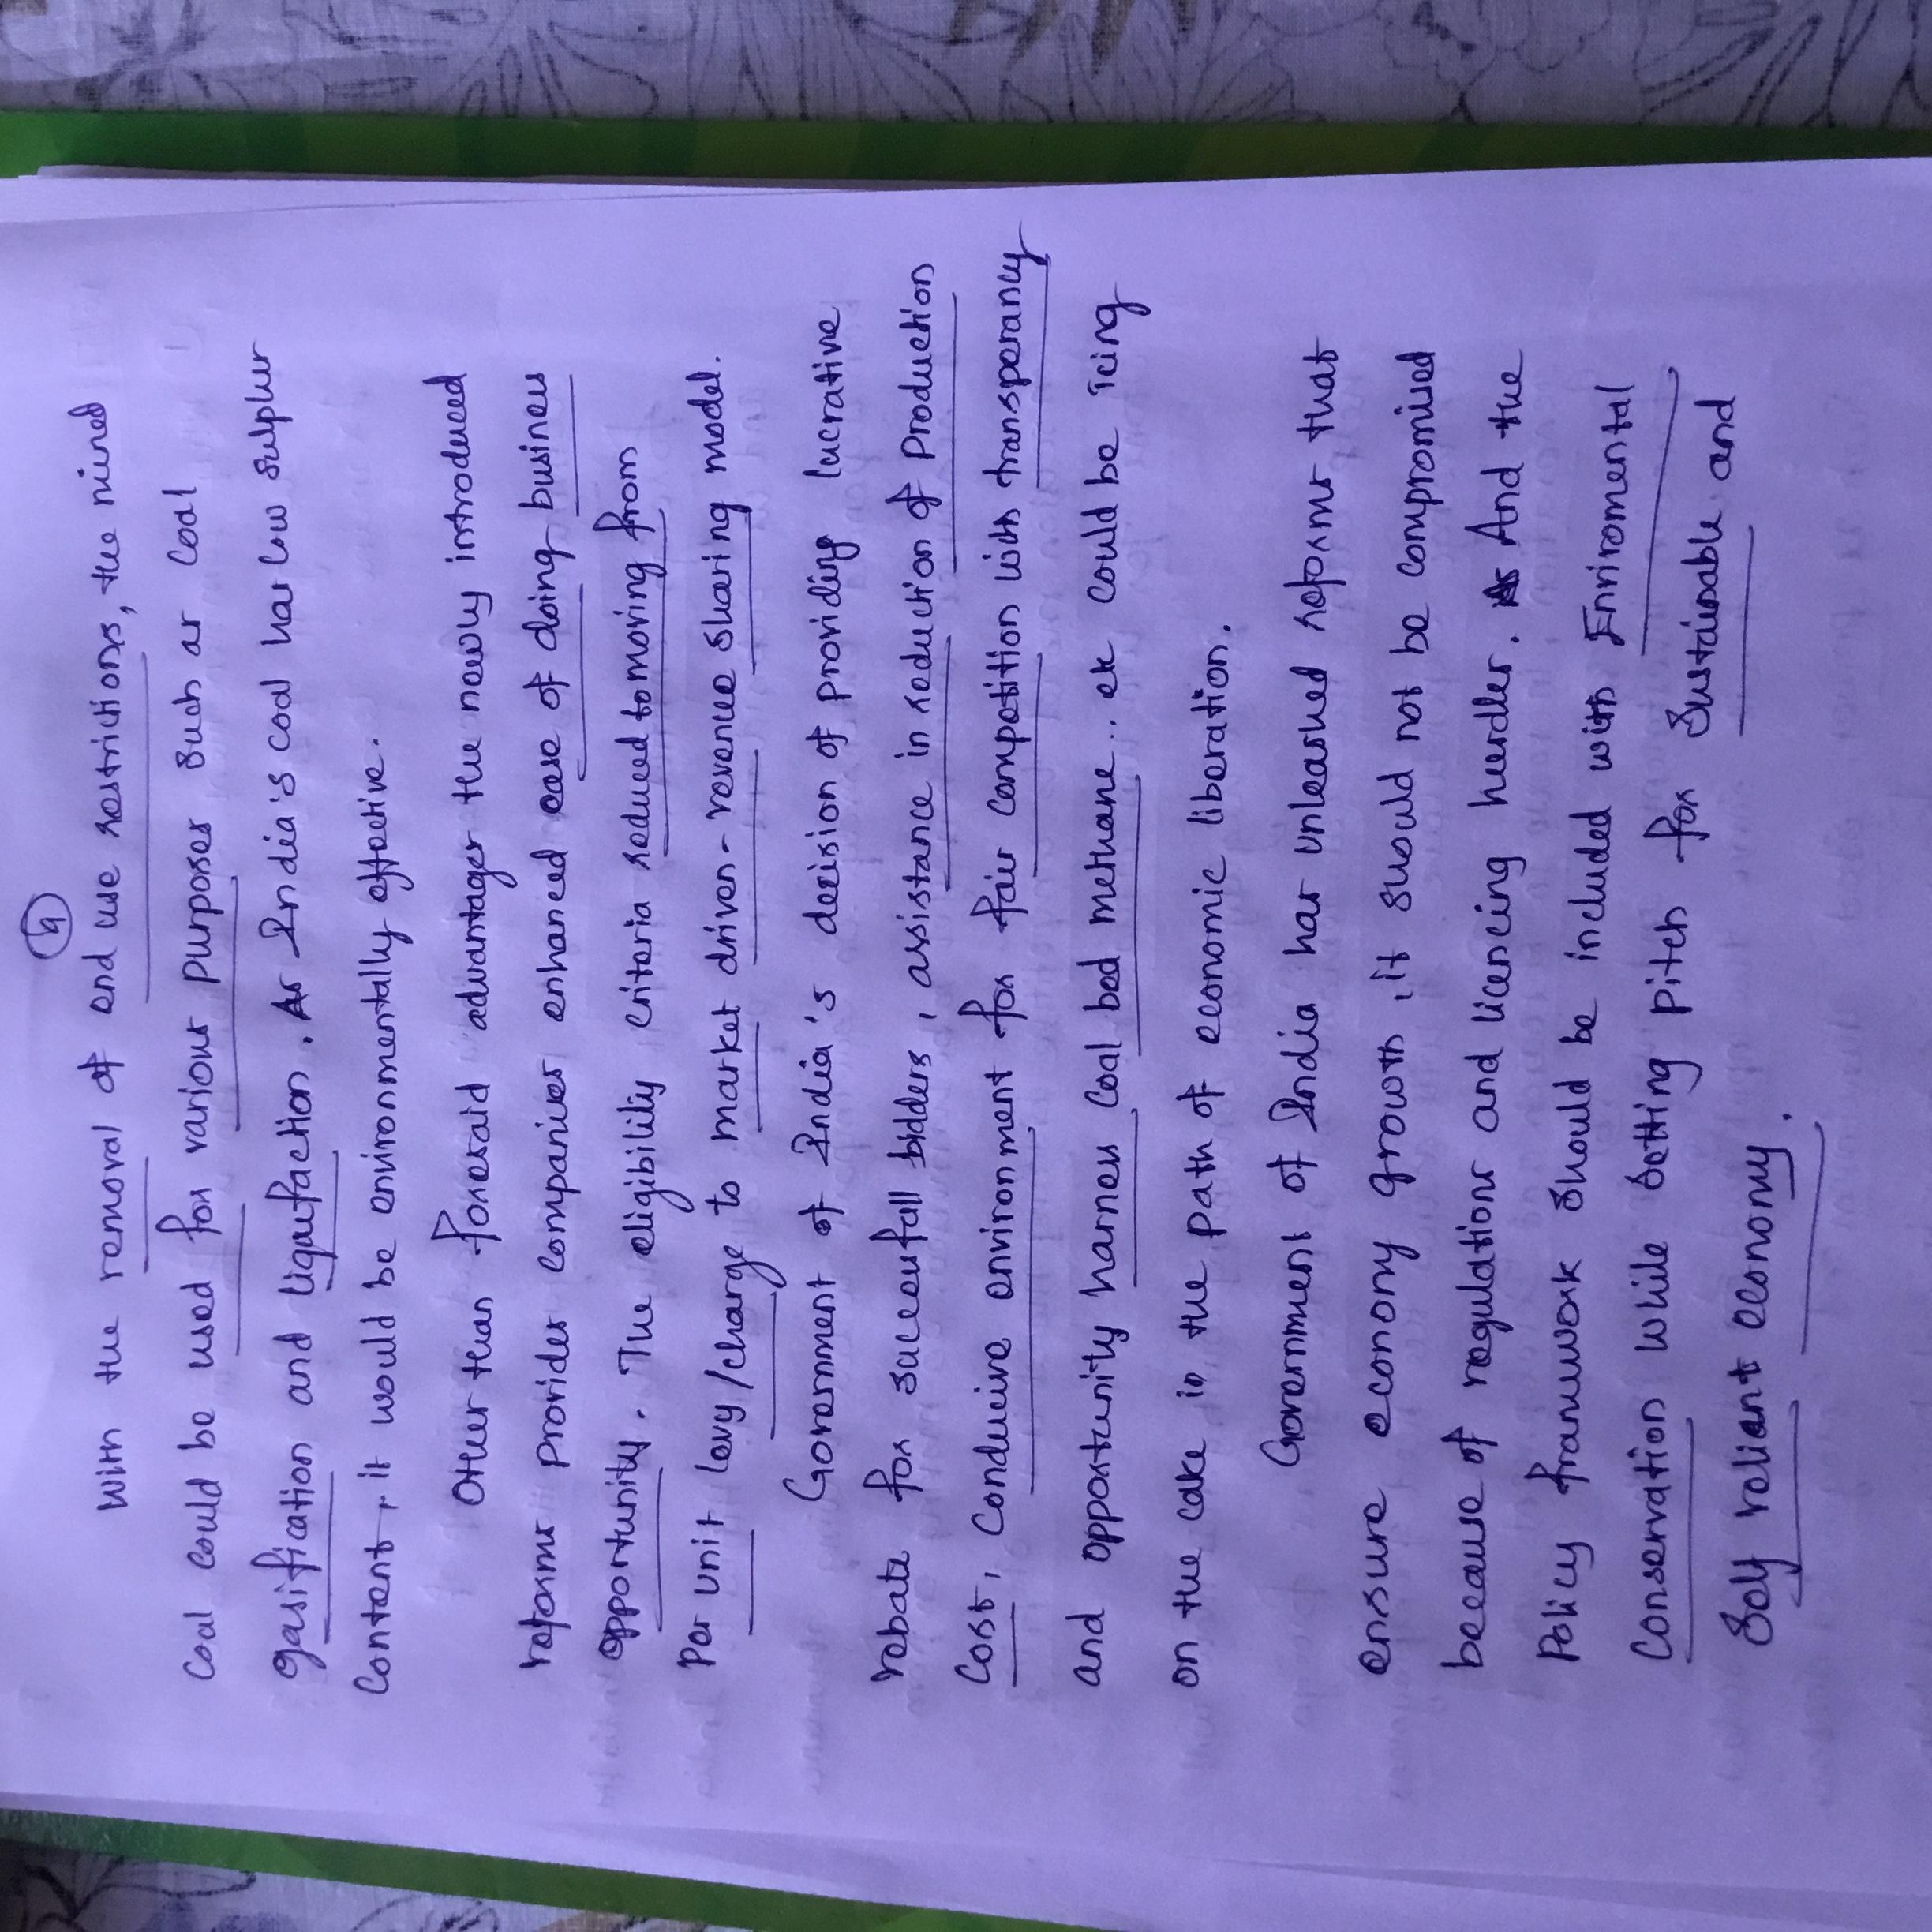 4
With the removal of end use restrictions, the mined
Coal could be used for various purposes such as coal
gasification and liquefaction. As India's coal has low sulphur
Content, it would be environmentally effective.
Other than foresaid advantages the newly introduced
reforms provides companies enhanced ease of doing business
opportunity. The eligibility criteria reduced to moving from
Per unit levy/charge to market driven- revenue sharing model.
Government of India's decision of providing lucrative
rebate for successfull bidders, assistance in reduction of production
Cost, Conducive environment for fair competition with transparancy
and opportunity harness coal bed methane... etc could be icing
on the cake in the path of economic liberation.
Government of India has unleashed reforms that
ensure economy growth, it should not be compromised
because of regulations and licencing hurdles. And the
Policy framework should be included with Enviromental
Conservation while setting pitch for Sustainable and
Self reliant economy.